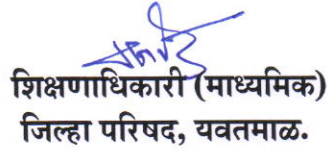 शिक्षणाधिकारी (माध्यमिक)
जिल्हा परिषद, यवतमाळ.